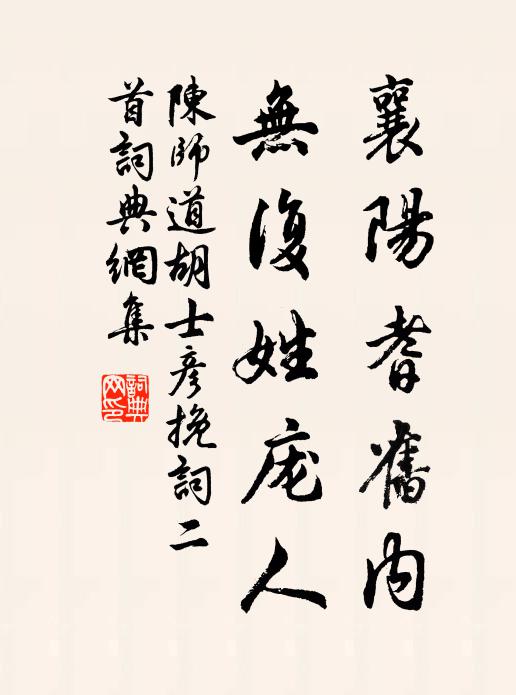 襄陽耆舊内
無復姓庞人
陳師道胡士彥挽詞二
首詞典網集
詞典
网印